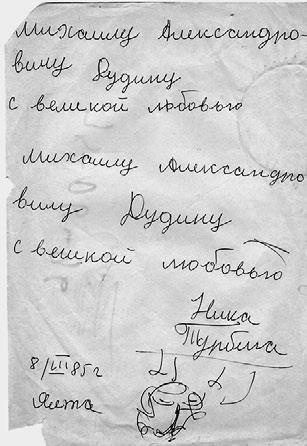 Михаилу Александро-
вичу Дудину
с великой любовью
Михаилу Александро
вичу Дудину
с великой любовью
Ника
Турбина
8/III 85 г
Ялта